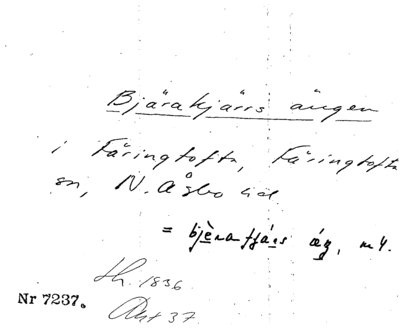 Bjärakjärrs ängen
i Färingtofta, Färingtofta
sn, N. Åsbo hd
= bjèrafjárs ág, m4.
lh. 1836
Akt 37
Nr 7237.